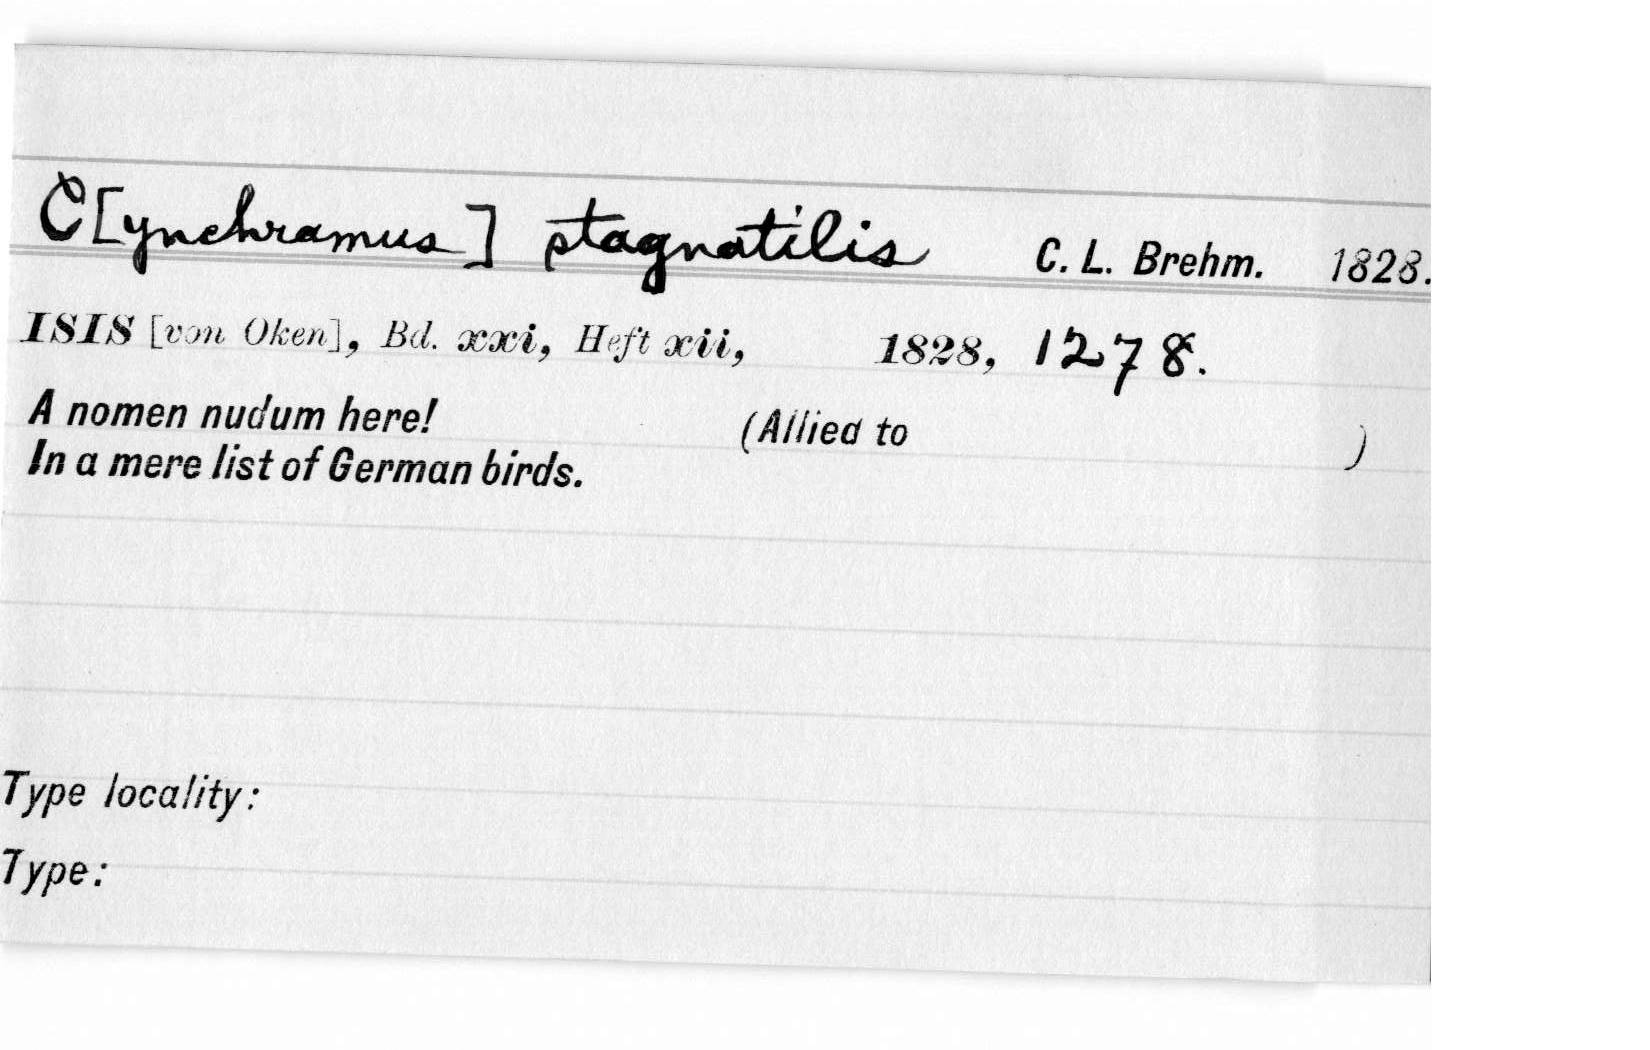 C[ynchramus] stagnatilis C. L. Brehm. 1828.
ISIS [von Oken], Bd. xxi, Heft xii, 1828, 1278.
A nomen nudum here! (Allied to )
In a mere list of German birds.
Type locality:
Type: